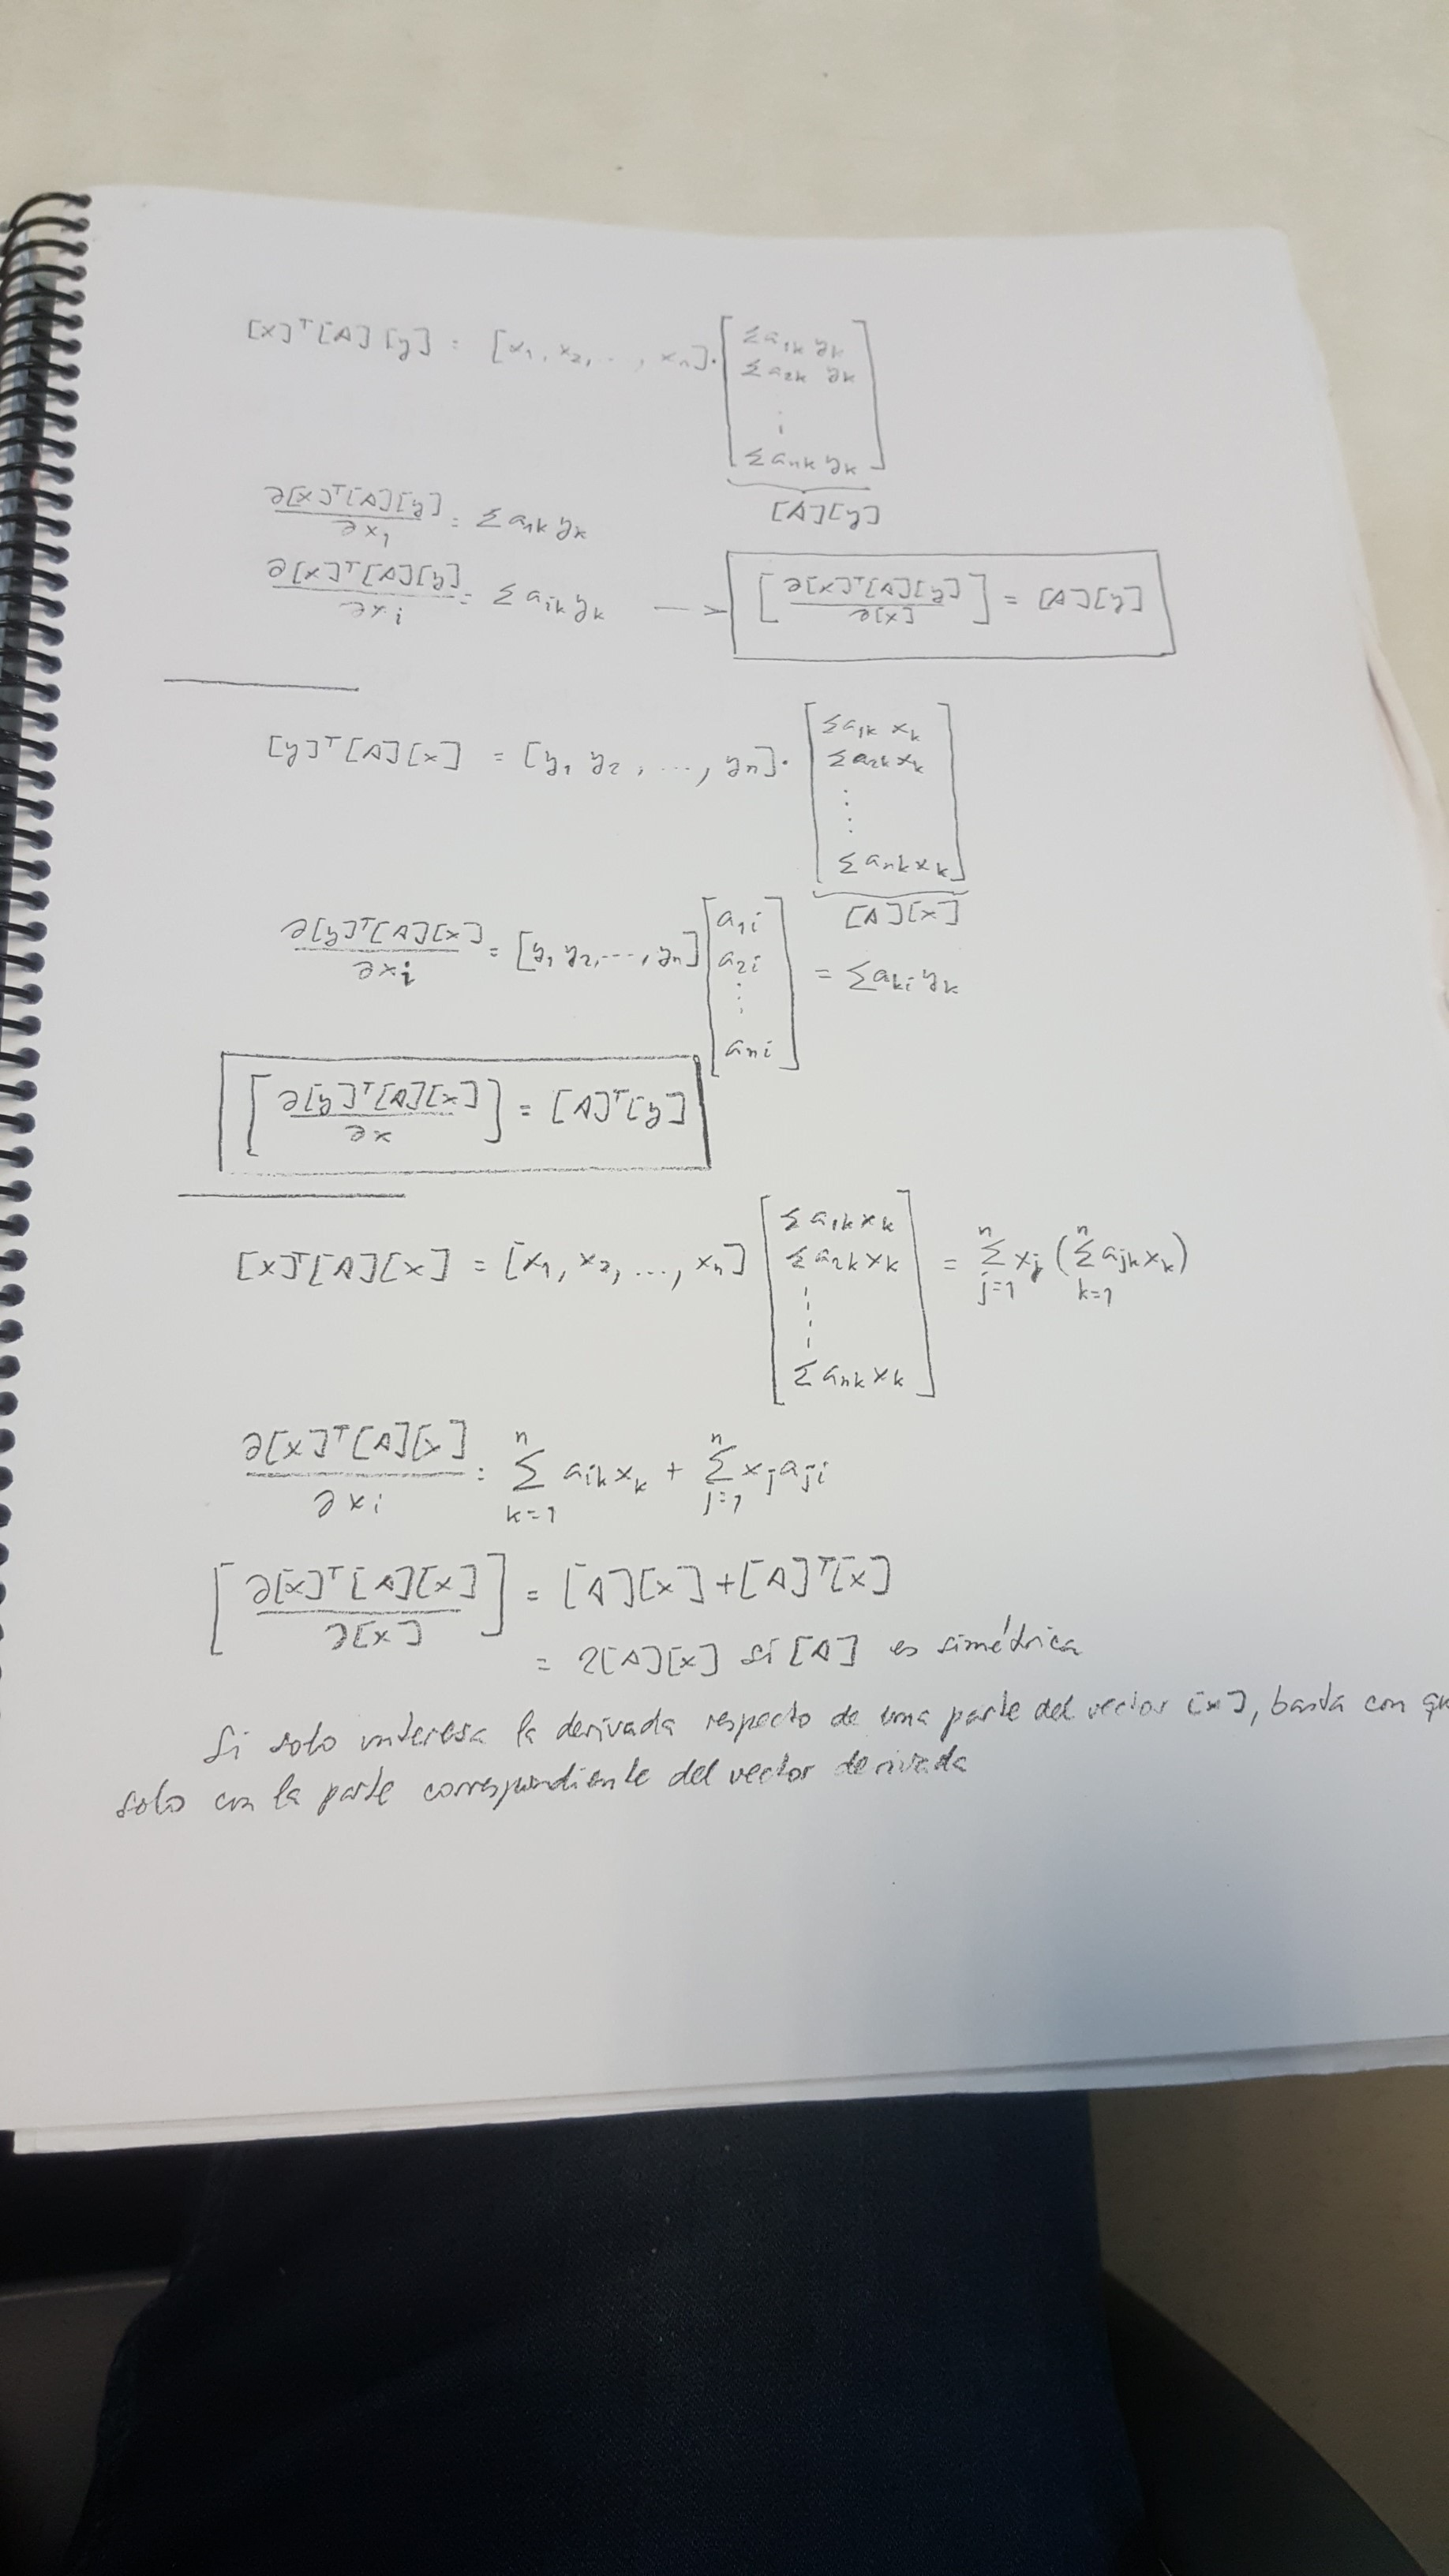 [x]ᵀ[A][y] = [x₁, x₂, .. , xₙ] · [Σa₁ₖ yₖ
Σa₂ₖ yₖ
⋮
Σaₙₖ yₖ]
[A][y]
∂[x]ᵀ[A][y]/∂x₁ = Σa₁ₖ yₖ
∂[x]ᵀ[A][y]/∂xᵢ = Σaᵢₖ yₖ —> [∂[x]ᵀ[A][y]/∂[x]] = [A][y]
[y]ᵀ[A][x] = [y₁ y₂, ..., yₙ] · [Σa₁ₖ xₖ
Σa₂ₖ xₖ
⋮
Σaₙₖ xₖ]
[A][x]
∂[y]ᵀ[A][x]/∂xᵢ = [y₁ y₂, ..., yₙ] [a₁ᵢ a₂ᵢ ⋮ aₙᵢ] = Σaₖᵢ yₖ
[∂[y]ᵀ[A][x]/∂x] = [A]ᵀ[y]
[x]ᵀ[A][x] = [x₁, x₂, ..., xₙ] [Σa₁ₖ xₖ Σa₂ₖ xₖ ⋮ Σaₙₖ xₖ] = Σⁿⱼ₌₁ xⱼ (Σⁿₖ₌₁ aⱼₖ xₖ)
∂[x]ᵀ[A][x]/∂xᵢ = Σⁿₖ₌₁ aᵢₖ xₖ + Σⁿⱼ₌₁ xⱼ aⱼᵢ
[∂[x]ᵀ[A][x]/∂[x]] = [A][x] + [A]ᵀ[x]
= 2[A][x] si [A] es simétrica
Si solo interesa la derivada respecto de una parte del vector [x], basta con qu
solo con la parte correspondiente del vector derivada